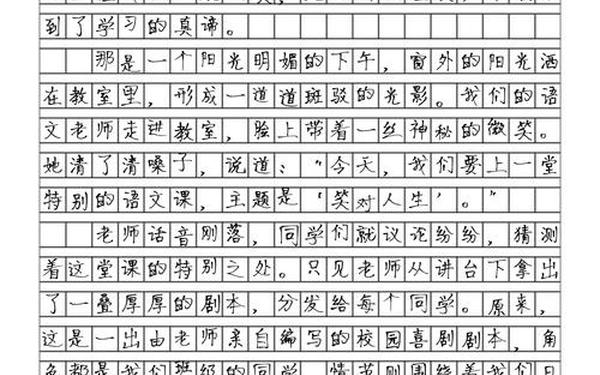 到了学习的真谛。
那是一个阳光明媚的下午，窗外的阳光洒
在教室里，形成一道道斑驳的光影。我们的语
文老师走进教室，脸上带着一丝神秘的微笑。
她清了清嗓子，说道：“今天，我们要上一堂
特别的语文课，主题是‘笑对人生’。”
老师话音刚落，同学们就议论纷纷，猜测
着这堂课的特别之处。只见老师从讲台下拿出
了一叠厚厚的剧本，分发给每个同学。原来，
这是一出由老师亲自编写的校园喜剧剧本，角
色都是我们班级的同学，情节则围绕着我们日